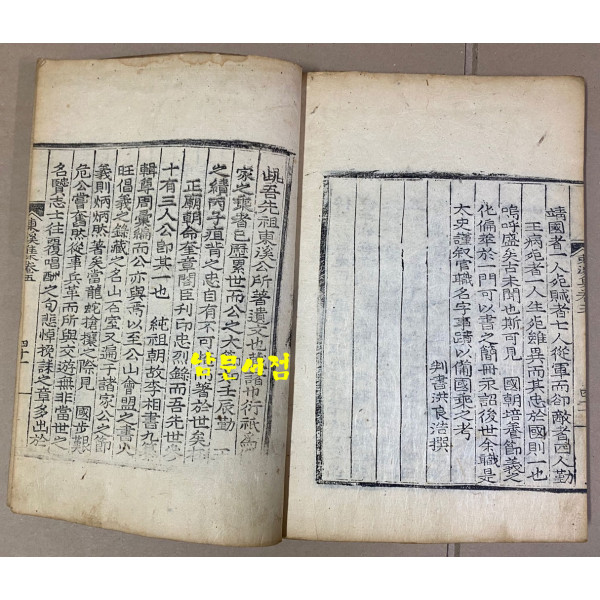 國者一人死賊者七人從軍而卻敵者四人勤
王病死者一人生死雖異而其忠於國則一也
嗚呼盛矣古未聞也斯可見 國朝培養節義之
化偏萃於一門可以書之簡冊永詔後世余職是
太史謹叙官職名字事蹟以備國乘之考
判書洪良浩撰
此吾先祖東溪公所著遺文也 諸巾衍祇為
家之乘者已歷累世而公之大 壬辰勤
之績丙子 背之忠自有不可 著於世矣
正廟朝命奎章閣臣刊印忠烈錄而吾先世
十有三人公卽其一也 純祖朝故李相書九
輯尊周彙編而公亦與焉以至公山會盟之書火
旺倡義之錄藏之名山石室又 諸家公之節
義則炳炳然著矣當龍蛇搶攘之際見 國步艱
危公嘗奮然從事兵革而所與交遊無非當世之
名賢志士往復唱酬之句悲悼挽誄之章多出於
東溪集卷五
四十一
남문서점